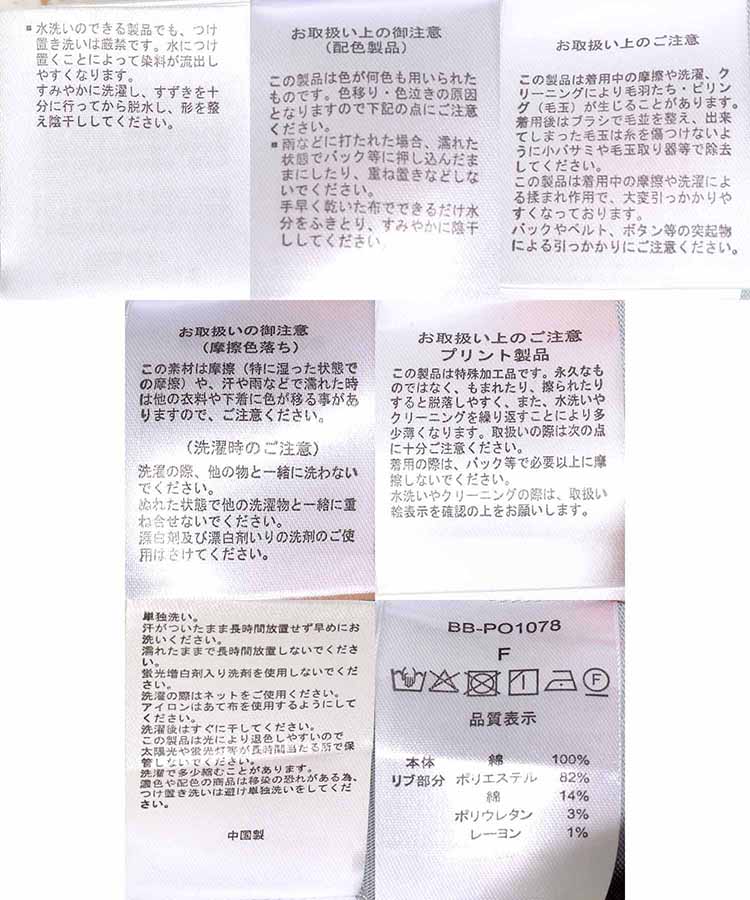 ▪水洗いのできる製品でも、つけ
置き洗いは厳禁です。水につけ
置くことによって染料が流出し
やすくなります。
すみやかに洗濯し、すずきを十
分に行ってから脱水し、形を整
え陰干ししてください。
お取扱い上の御注意
(配色製品)
この製品は色が何色も用いられた
ものです。色移り・色泣きの原因
となりますので下記の点にご注意
ください。
▪雨などに打たれた場合、濡れた
状態でバック等に押し込んだま
まにしたり、重ね置きなどしな
いでください。
手早く乾いた布でできるだけ水
分をふきとり、すみやかに陰干
ししてください。
お取扱い上のご注意
この製品は着用中の摩擦や洗濯、ク
リーニングにより毛羽たち・ピリン
グ(毛玉)が生じることがあります。
着用後はブラシで毛並を整え、出来
てしまった毛玉は糸を傷つけないよ
うに小バサミや毛玉取り器等で除去
してください。
この製品は着用中の摩擦や洗濯によ
る揉まれ作用で、大変引っかかりや
すくなっております。
バックやベルト、ボタン等の突起物
による引っかかりにご注意ください。
お取扱いの御注意
(摩擦色落ち)
この素材は摩擦(特に湿った状態で
の摩擦)や、汗や雨などで濡れた時
は他の衣料や下着に色が移る事があ
りますので、ご注意ください。
(洗濯時のご注意)
洗濯の際、他の物と一緒に洗わない
でください。
ぬれた状態で他の洗濯物と一緒に重
ね合せないでください。
漂白剤及び漂白剤いりの洗剤のご使
用はさけてください。
お取扱い上のご注意
プリント製品
この製品は特殊加工品です。永久なも
のではなく、もまれたり、擦られたりす
ると脱落しやすく、また、水洗いや
クリーニングを繰り返すことにより多
少薄くなります。取扱いの際は次の点
に十分ご注意ください。
着用の際は、バック等で必要以上に摩
擦しないでください。
水洗いやクリーニングの際は、取扱い
絵表示を確認の上をお願いします。
単独洗い。
汗がついたまま長時間放置せず早めにお
洗いください。
濡れたままで長時間放置しないでくださ
い。
蛍光増白剤入り洗剤を使用しないでくだ
さい。
洗濯の際はネットをご使用ください。
アイロンはあて布を使用するようにして
ください。
洗濯後はすぐに干してください。
この製品は光により退色しやすいので
太陽光や蛍光灯等が長時間当たる所で保
管しないでください。
洗濯で多少縮むことがあります。
濃色や配色の商品は移染の恐れがある為、
つけ置き洗いは避け単独洗いをしてくだ
さい。
中国製
BB-PO1078
F
品質表示
本体 綿 100%
リブ部分 ポリエステル 82%
綿 14%
ポリウレタン 3%
レーヨン 1%